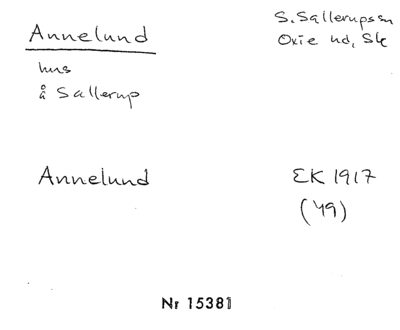 Annelund
S. Sallerups sn
Oxie hd, Sk
hus
å Sallerup
Annelund
EK 1917
(49)
Nr 15381